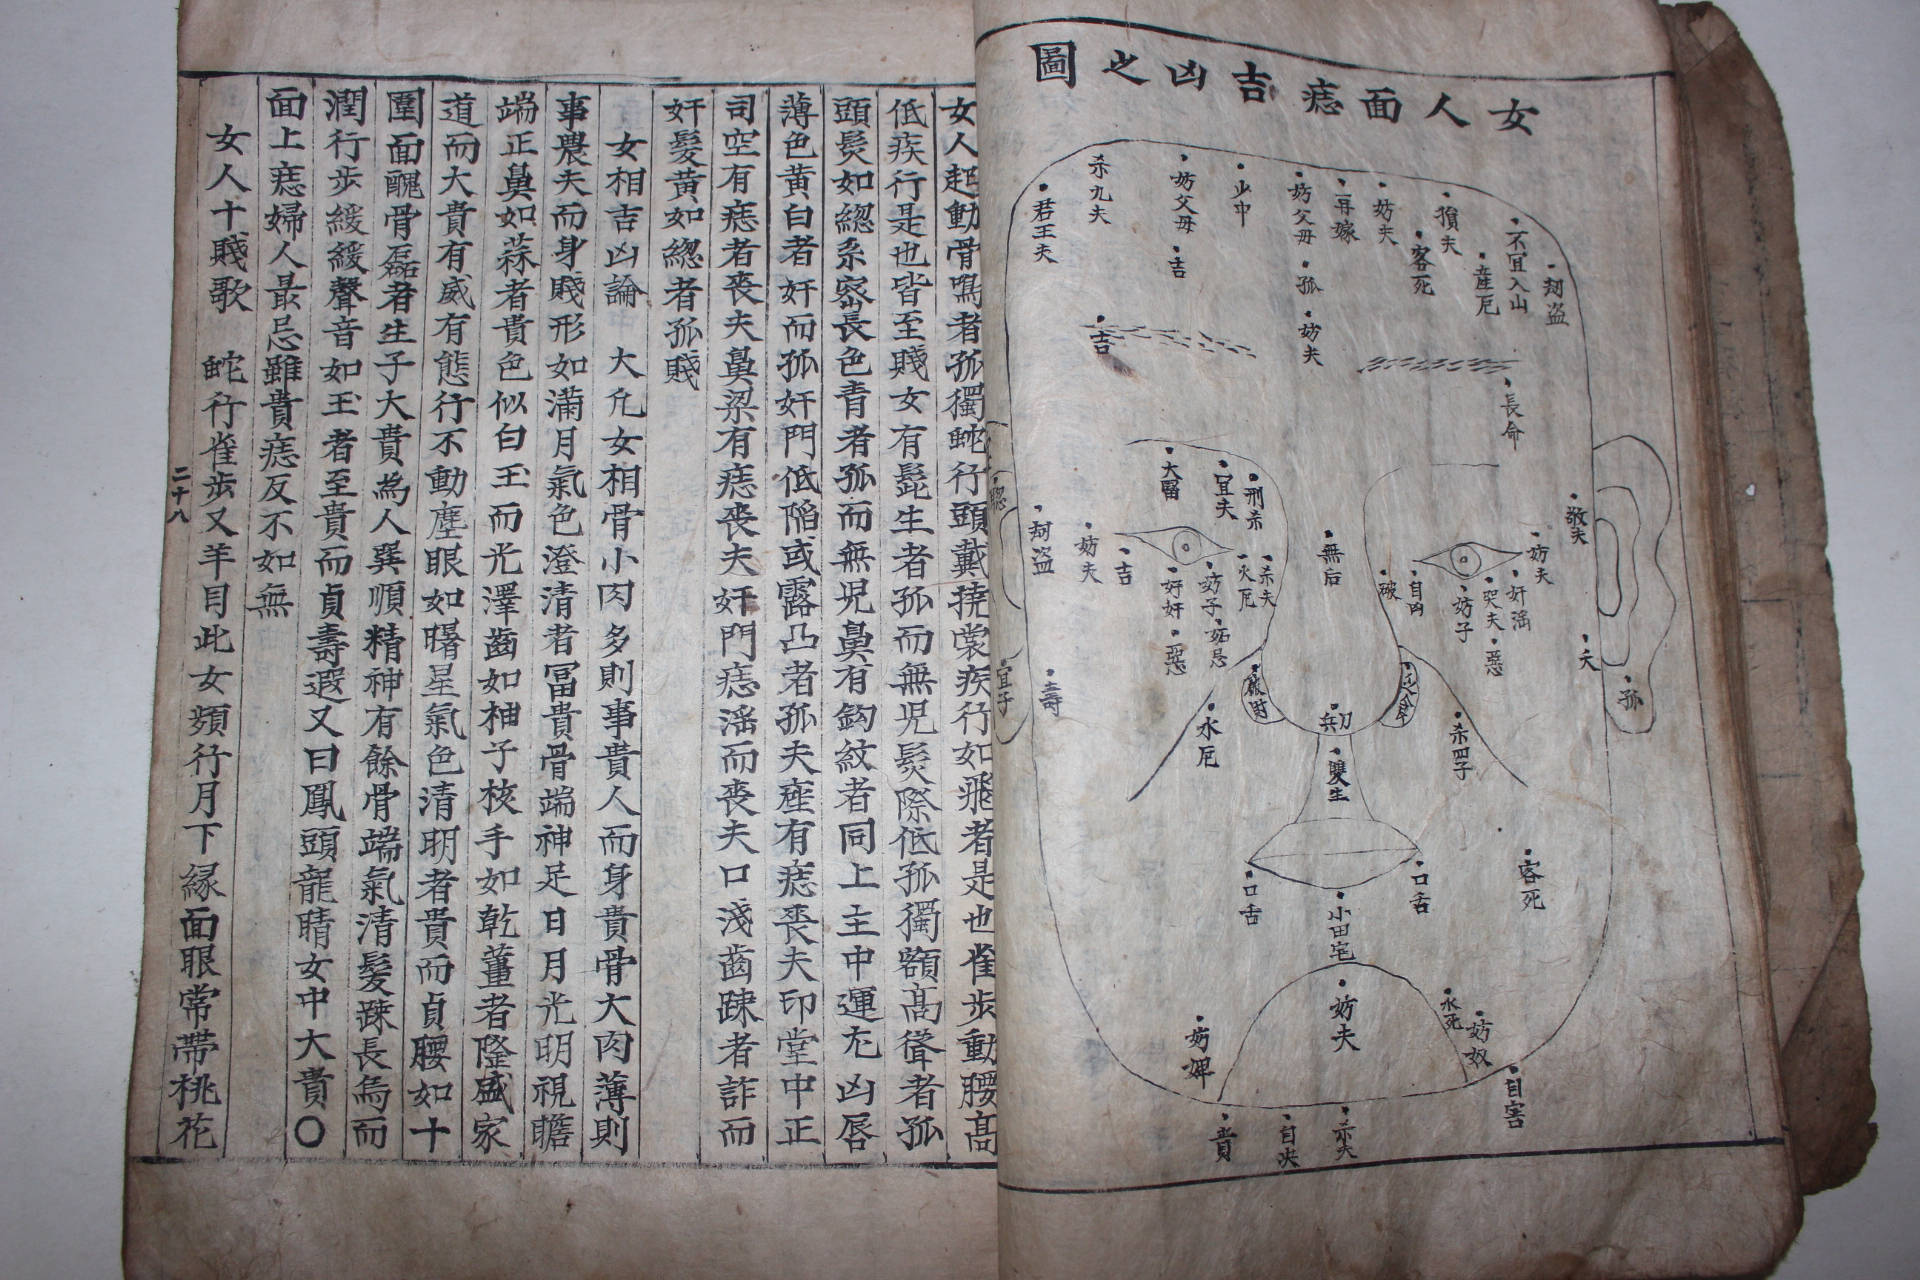 女人面痣吉凶之圖
刼盗
不宜入山
産厄
損夫
客死
妨夫
再嫁
妨父母
孤
妨夫
少中
妨父母
吉
杀九夫
君王夫
吉
長命
大富
宜夫
刑杀
敬夫
妨夫
奸滛
哭夫
惡
妨子
自凶
破
無后
杀夫
火厄
妨子
妬忌
奸
惡
吉
妨夫
刼盗
聦
宜子
壽
夭
孤
水厄
兵刀
雙生
杀四子
口舌
口舌
客死
小田宅
妨夫
水死
妨奴
妨婢
自害
杀夫
自决
貴
女人起動骨鳴者孤獨虵行頭戴撓裳疾行如飛者是也雀步動腰高
低疾行是也皆至賤女有髭生者孤而無児髮際低孤獨額高聳者孤
頭髮如緫系宻長色青者孤而無児鼻有鈎紋者同上主中運充凶唇
薄色黄白者奸而孤奸門低陷或露凸者孤夫座有痣喪夫印堂中正
司空有痣者喪夫鼻梁有痣喪夫奸門痣滛而喪夫口淺齒踈者詐而
奸髮黄如緫者孤賤
女相吉凶論 大凡女相骨小肉多則事貴人而身貴骨大肉薄則
事農夫而身賤形如滿月氣色澄清者冨貴骨端神足日月光明視瞻
端正鼻如蒜者貴色似白玉而光澤齒如柚子核手如乾薑者隆盛家
道而大貴有威有態行不動塵眼如曙星氣色清明者貴而貞腰如十
圍面醜骨磊者生子大貴爲人巽順精神有餘骨端氣清髮踈長烏而
潤行步緩緩聲音如玉者至貴而貞壽遐又曰鳳頭龍睛女中大貴〇
面上痣婦人最忌雖貴痣反不如無
女人十賤歌 虵行雀步又羊目此女頻行月下緑面眼常帶桃花
二十八